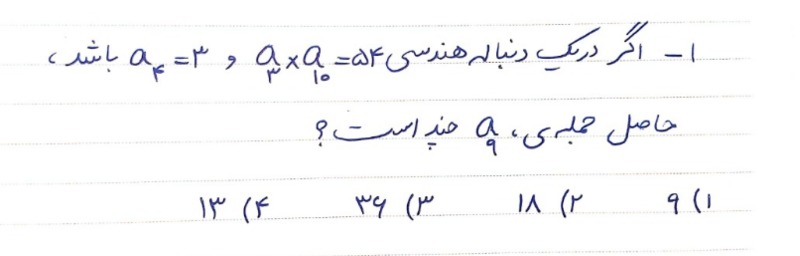 ۱- اگر در یک دنباله هندسی a₃×a₁₀=۵۴ و a₄=۳ باشد،
حاصل جمله‌ی، a₉ چند است؟
۱) ۹ ۲) ۱۸ ۳) ۳۶ ۴) ۱۳